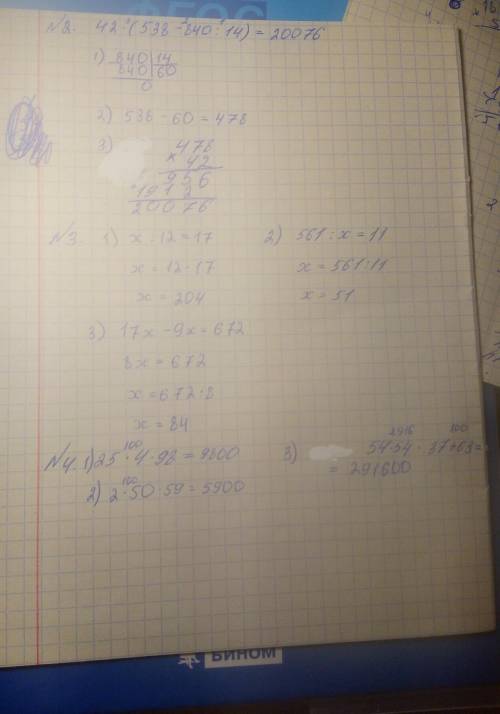 ФГОС
№2. 42·(538-840:14)=20076
1) 840 | 14
840 | 60
0
2) 538-60=478
3) 478
× 42
956
+1912
20076
№3. 1) x:12=17 2) 561:x=11
x=12·17 x=561:11
x=204 x=51
3) 17x-9x=672
8x=672
x=672:8
x=84
100 2916 100
№4. 1) 25·4·98=9800 3) 54·54·37+63=
= 291600
100
2) 2·50·59=5900
БИНОМ